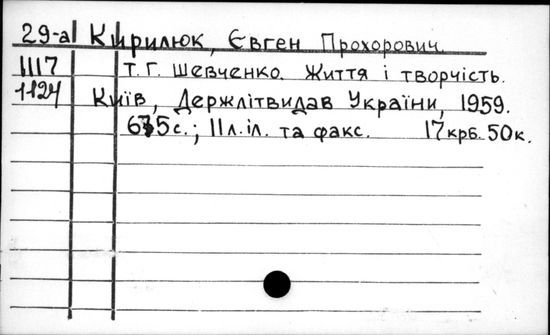 29-а Кирилюк, Євген Прохорович.
1117 Т. Г. Шевченко. Життя і творчість.
1124 Київ, Держлітвидав України, 1959.
675 с.; 11 л. іл. та факс. 17 крб. 50 к.